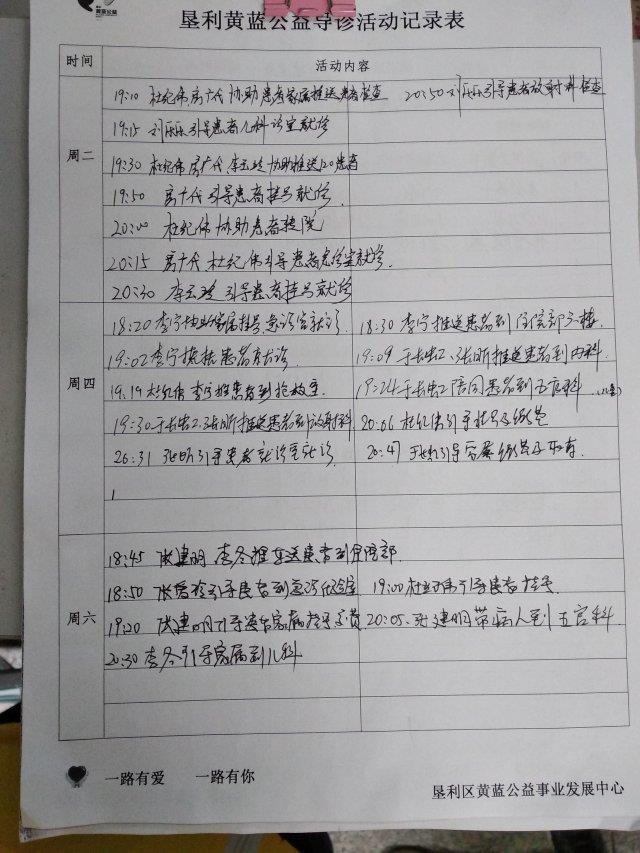 黄蓝公益
垦利黄蓝公益导诊活动记录表
时间 活动内容
周二
19:10 杜纪伟 房广代 协助患者家属推送患者检查 20:50 刘乐乐引导患者放射科检查
19:15 刘乐乐引导患者儿科诊室就诊
19:30 杜纪伟 房广代 李玉 协助推送120患者
19:50 房广代引导患者挂号就诊
20:00 杜纪伟协助患者转院
20:15 房广代 杜纪伟引导患者急诊室就诊
20:30 李玉 引导患者挂号就诊
周四
18:20 李宁协助家属挂号急诊室就诊 18:30 李宁推送患者到住院部六楼
19:02 李宁 患者就诊 19:09 于长 张昕推送患者到内科
19:19 杜纪伟 李宁推患者到抢救室 19:24 于长 陪同患者到五官科
19:30 于长 张昕推送患者到放射科 20:06 杜纪伟引导挂号及缴费
20:31 张昕引导患者就诊室就诊 20:47 引导 缴费及
周六
18:45 张建明 李冬推车送患者到住院部
18:50 张 引导患者到急诊 室 19:00 杜纪伟引导患者挂号
19:20 张建明引导患者家属挂号交费 20:05 张建明带病人到五官科
20:30 李冬引导家属到儿科
一路有爱 一路有你
垦利区黄蓝公益事业发展中心